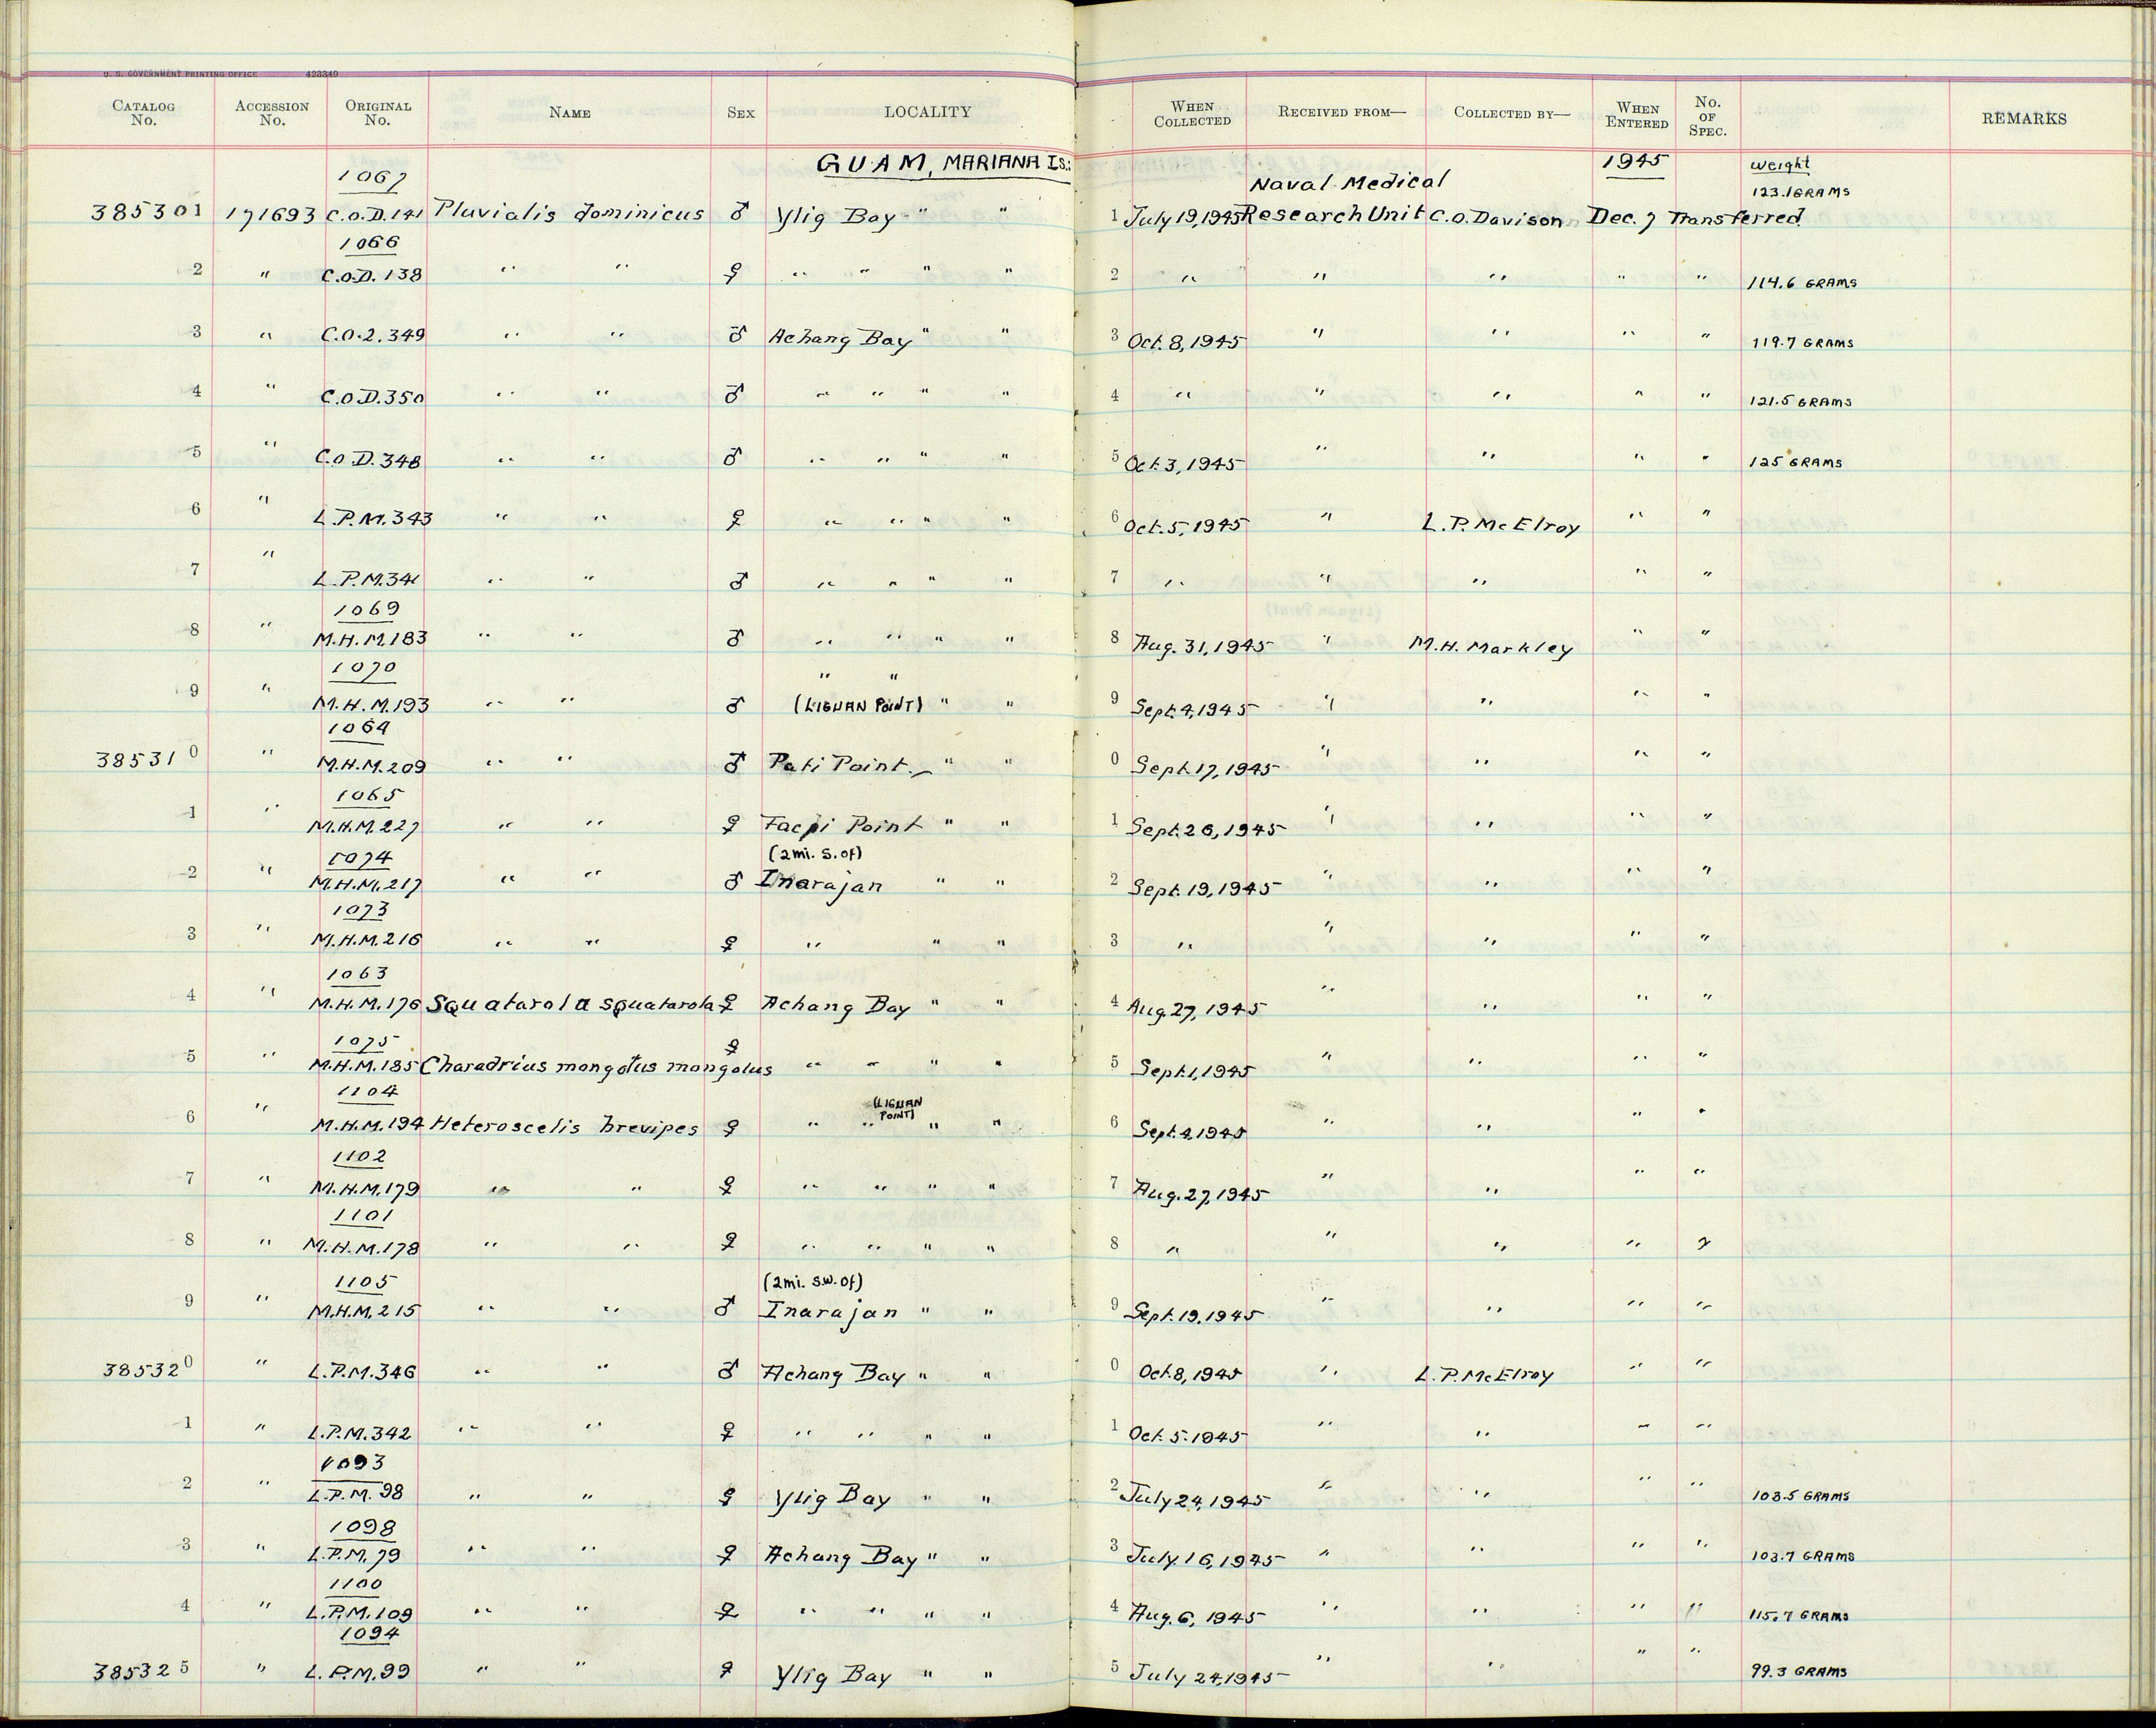 U. S. GOVERNMENT PRINTING OFFICE 423349
CATALOG No. ACCESSION No. ORIGINAL No. NAME SEX LOCALITY WHEN COLLECTED RECEIVED FROM— COLLECTED BY— WHEN ENTERED No. OF SPEC. REMARKS
GUAM, MARIANA Is.: 1945 Weight
1067 Naval Medical 123.1 GRAMS
385301 171693 C.O.D.141 Pluvialis dominicus ♂ Ylig Bay " " 1 July 19, 1945 Research Unit C.O. Davison Dec. 7 Transferred.
1066
2 " C.O.D. 138 " " ♀ " " " " 2 " " " " " 114.6 GRAMS
3 " C.O.2. 349 " " ♂ Achang Bay " " 3 Oct. 8, 1945 " " " " 119.7 GRAMS
4 " C.O.D. 350 " " ♂ " " " " 4 " " " " " 121.5 GRAMS
5 " C.O.D. 348 " " ♂ " " " " 5 Oct. 3, 1945 " " " " 125 GRAMS
6 " L.P.M. 343 " " ♀ " " " " 6 Oct. 5, 1945 " L.P. McElroy " "
7 " L.P.M. 341 " " ♂ " " " " 7 " " " " "
1069
8 " M.H.M. 183 " " ♂ " " " " 8 Aug. 31, 1945 " M.H. Markley " "
1070 " "
9 " M.H.M. 193 " " ♂ (LIGUAN POINT) " " 9 Sept. 4, 1945 " " " "
1064
385310 " M.H.M. 209 " " ♂ Pati Point. " " 0 Sept. 17, 1945 " " " "
1065
1 " M.H.M. 227 " " ♀ Facpi Point " " 1 Sept. 26, 1945 " " " "
1074 (2 mi. S. of)
2 " M.H.M. 217 " " ♂ Inarajan " " 2 Sept. 19, 1945 " " " "
1073
3 " M.H.M. 216 " " ♀ " " " 3 " " " " "
1063
4 " M.H.M. 176 Squatarola squatarola ♀ Achang Bay " " 4 Aug. 27, 1945 " " " "
1075 ♀
5 " M.H.M. 185 Charadrius mongolus mongolus " " " " 5 Sept. 1, 1945 " " " "
1104 (LIGUAN POINT)
6 " M.H.M. 194 Heteroscelis brevipes ♀ " " " " 6 Sept. 4, 1945 " " " "
1102
7 " M.H.M. 179 " " ♀ " " " " 7 Aug. 27, 1945 " " " "
1101
8 " M.H.M. 178 " " ♀ " " " " 8 " " " " 2
1105 (2 mi. S.W. of)
9 " M.H.M. 215 " " ♂ Inarajan " " 9 Sept. 19, 1945 " " " "
385320 " L.P.M. 346 " " ♂ Achang Bay " " 0 Oct. 8, 1945 " L.P. McElroy " "
1 " L.P.M. 342 " " ♀ " " " " 1 Oct. 5. 1945 " " " "
1093
2 " L.P.M. 98 " " ♀ Ylig Bay " " 2 July 24, 1945 " " " " 103.5 GRAMS
1098
3 " L.P.M. 79 " " ♀ Achang Bay " " 3 July 16, 1945 " " " " 103.7 GRAMS
1100
4 " L.P.M. 109 " " ♀ " " " " 4 Aug. 6, 1945 " " " " 115.7 GRAMS
1094
385325 " L.P.M. 99 " " ♀ Ylig Bay " " 5 July 24, 1945 " " " " 99.3 GRAMS